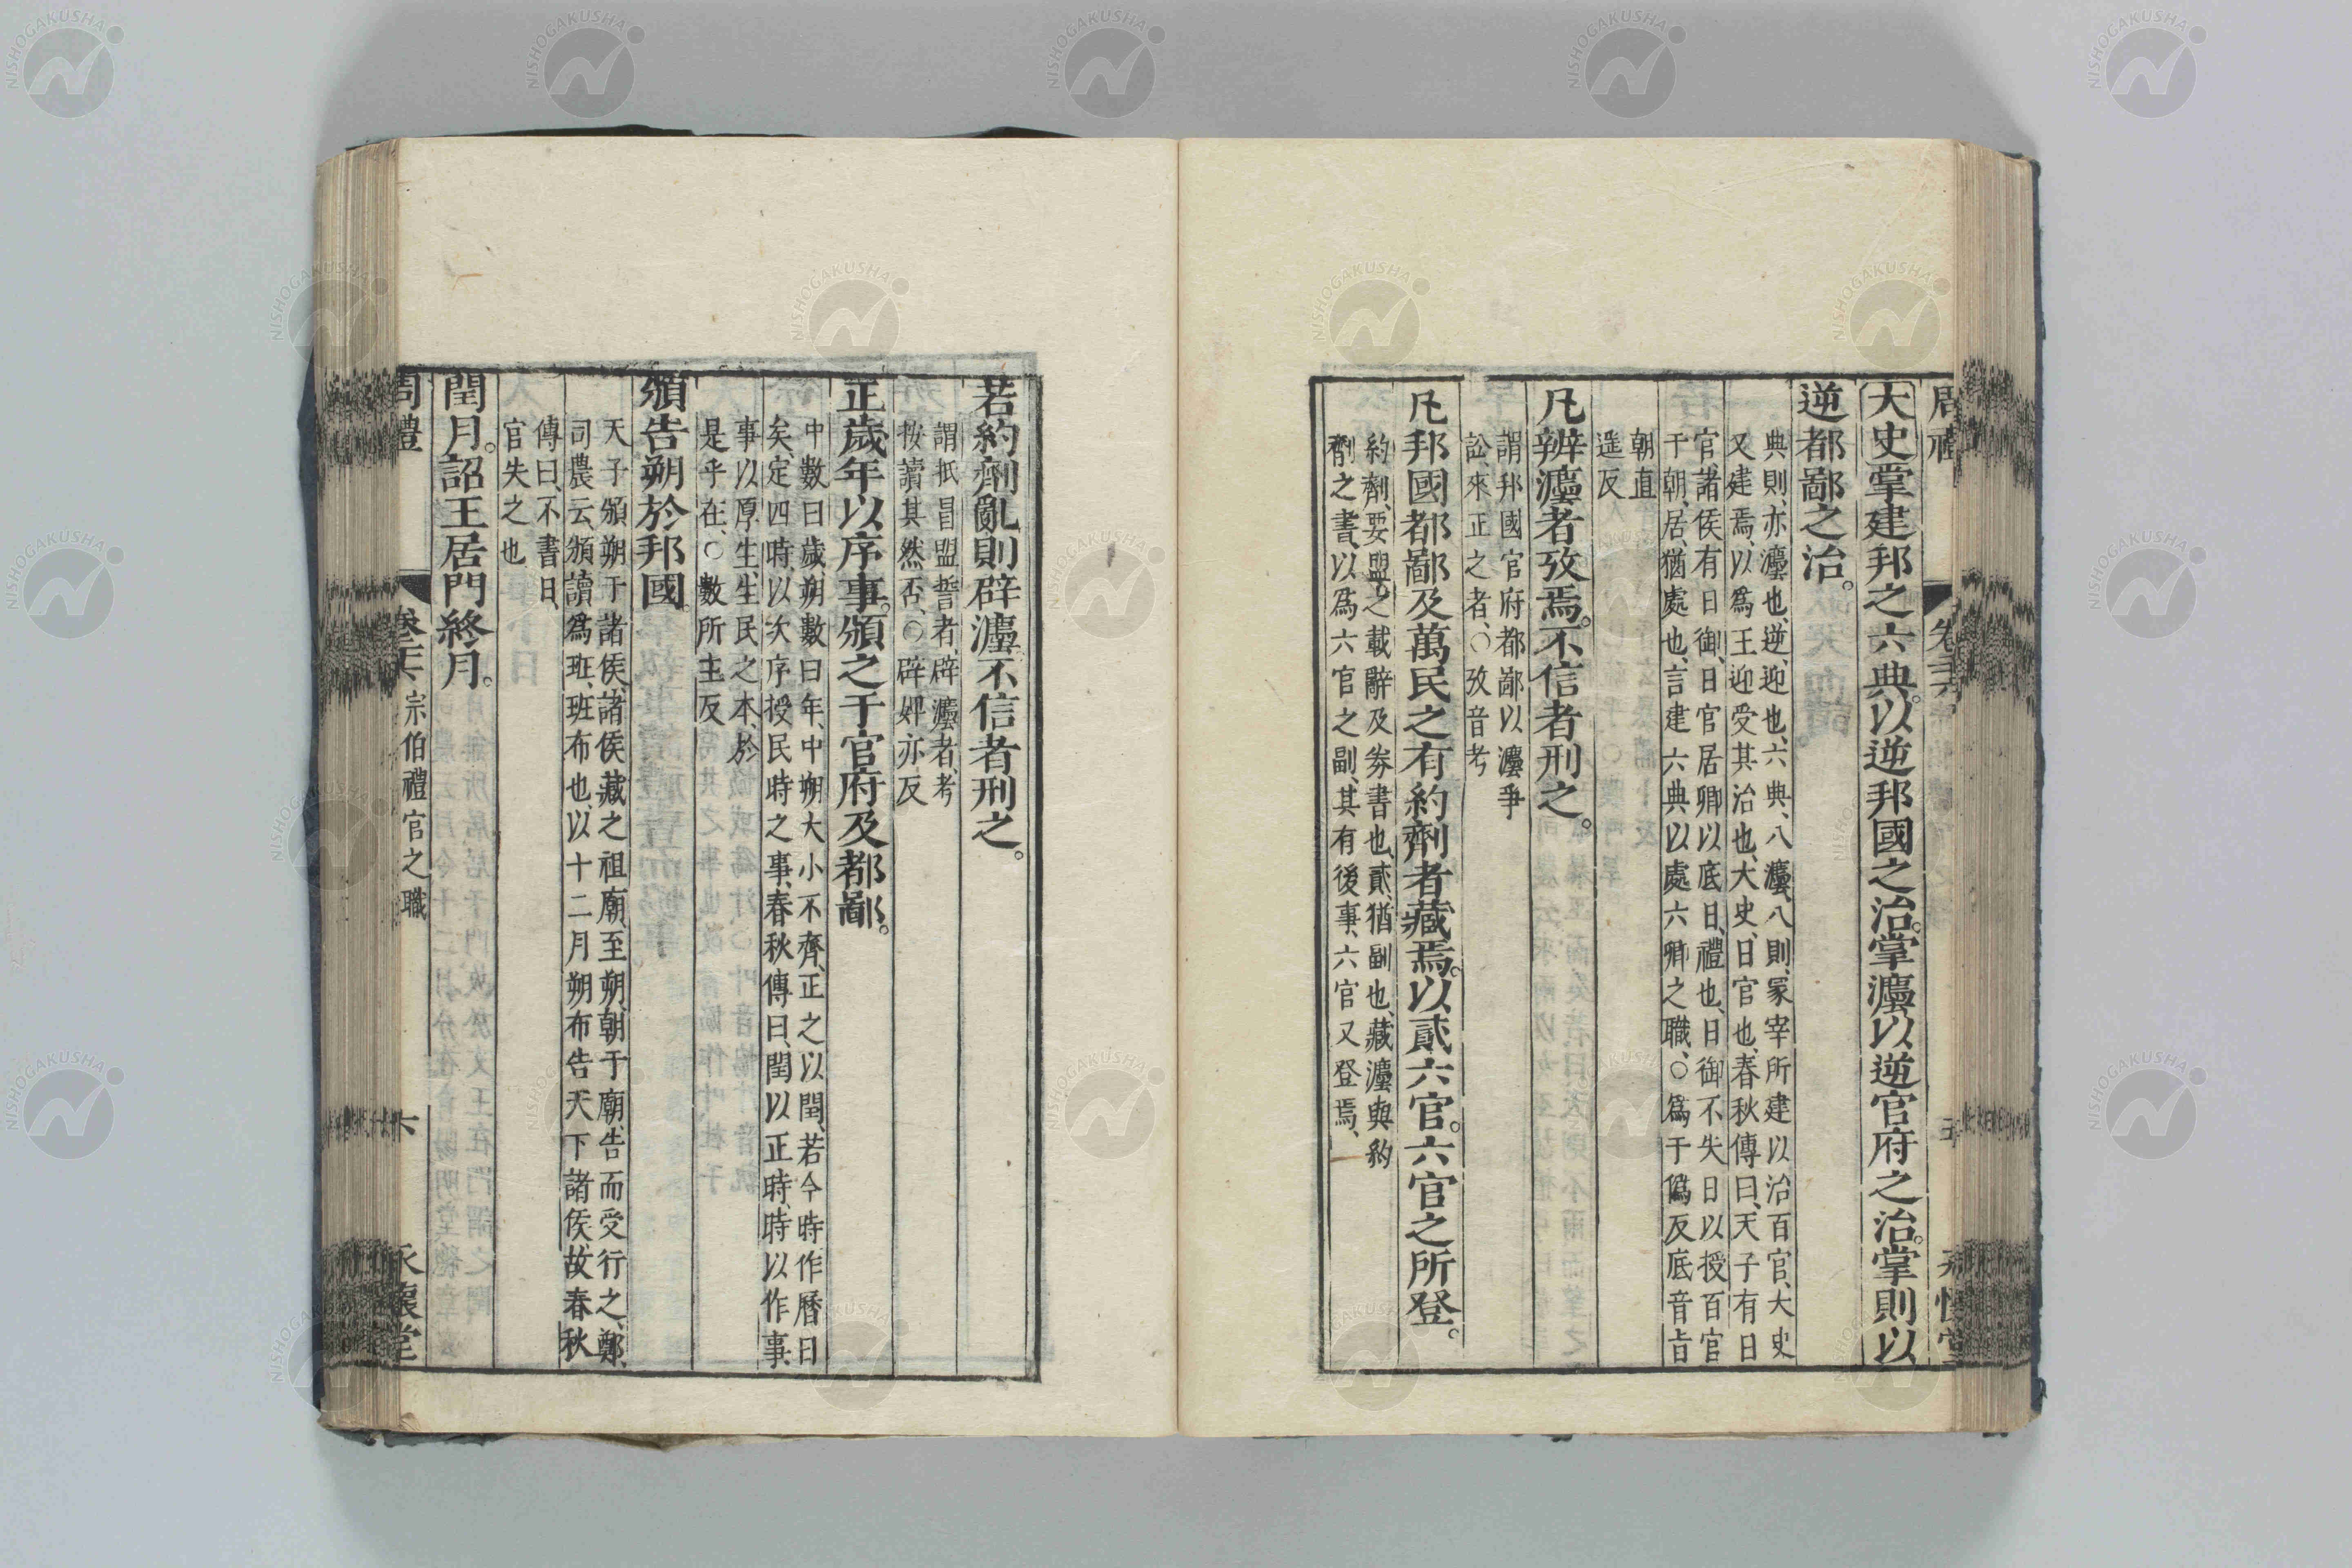 大史掌建邦之六典。以逆邦國之治。掌灋以逆官府之治。掌則以
逆都鄙之治。
典則、亦灋也、逆、迎也、六典、八灋、八則、冢宰所建以治百官、大史
又建焉、以爲王迎受其治也、大史、日官也、春秋傳曰、天子有日
官、諸侯有日御、日官居卿以底日、禮也、日御不失日以授百官
于朝、居、猶處也、言建六典以處六卿之職、○爲于僞反底音旨
朝直
遥反
凡辨灋者攷焉。不信者刑之。
謂邦國官府都鄙以灋爭
訟、來正之者、○攷音考
凡邦國都鄙及萬民之有約劑者藏焉。以貳六官。六官之所登。
約劑、要盟之載辭及劵書也、貳、猶副也、藏灋與約
劑之書、以爲六官之副、其有後事、六官又登焉、
若約劑亂則辟灋不信者刑之。
謂抵冒盟誓者、辟灋者、考
按讀其然否、○辟婢亦反
正歲年以序事。頒之于官府及都鄙。
中數曰歲朔數曰年、中朔大小不齊、正之以閏、若今時作曆日
矣、定四時、以次序授民時之事、春秋傳曰、閏以正時、時以作事、
事以厚生、生民之本、於
是乎在、○數所主反
頒告朔於邦國
天子頒朔于諸侯、諸侯藏之祖廟、至朔、朝于廟、告而受行之、鄭
司農云、頒讀爲班、班布也、以十二月朔布告天下諸侯、故春秋
傳曰、不書日、
官失之也
閏月。詔王居門終月。
周禮
宗伯禮官之職
六
永懷堂